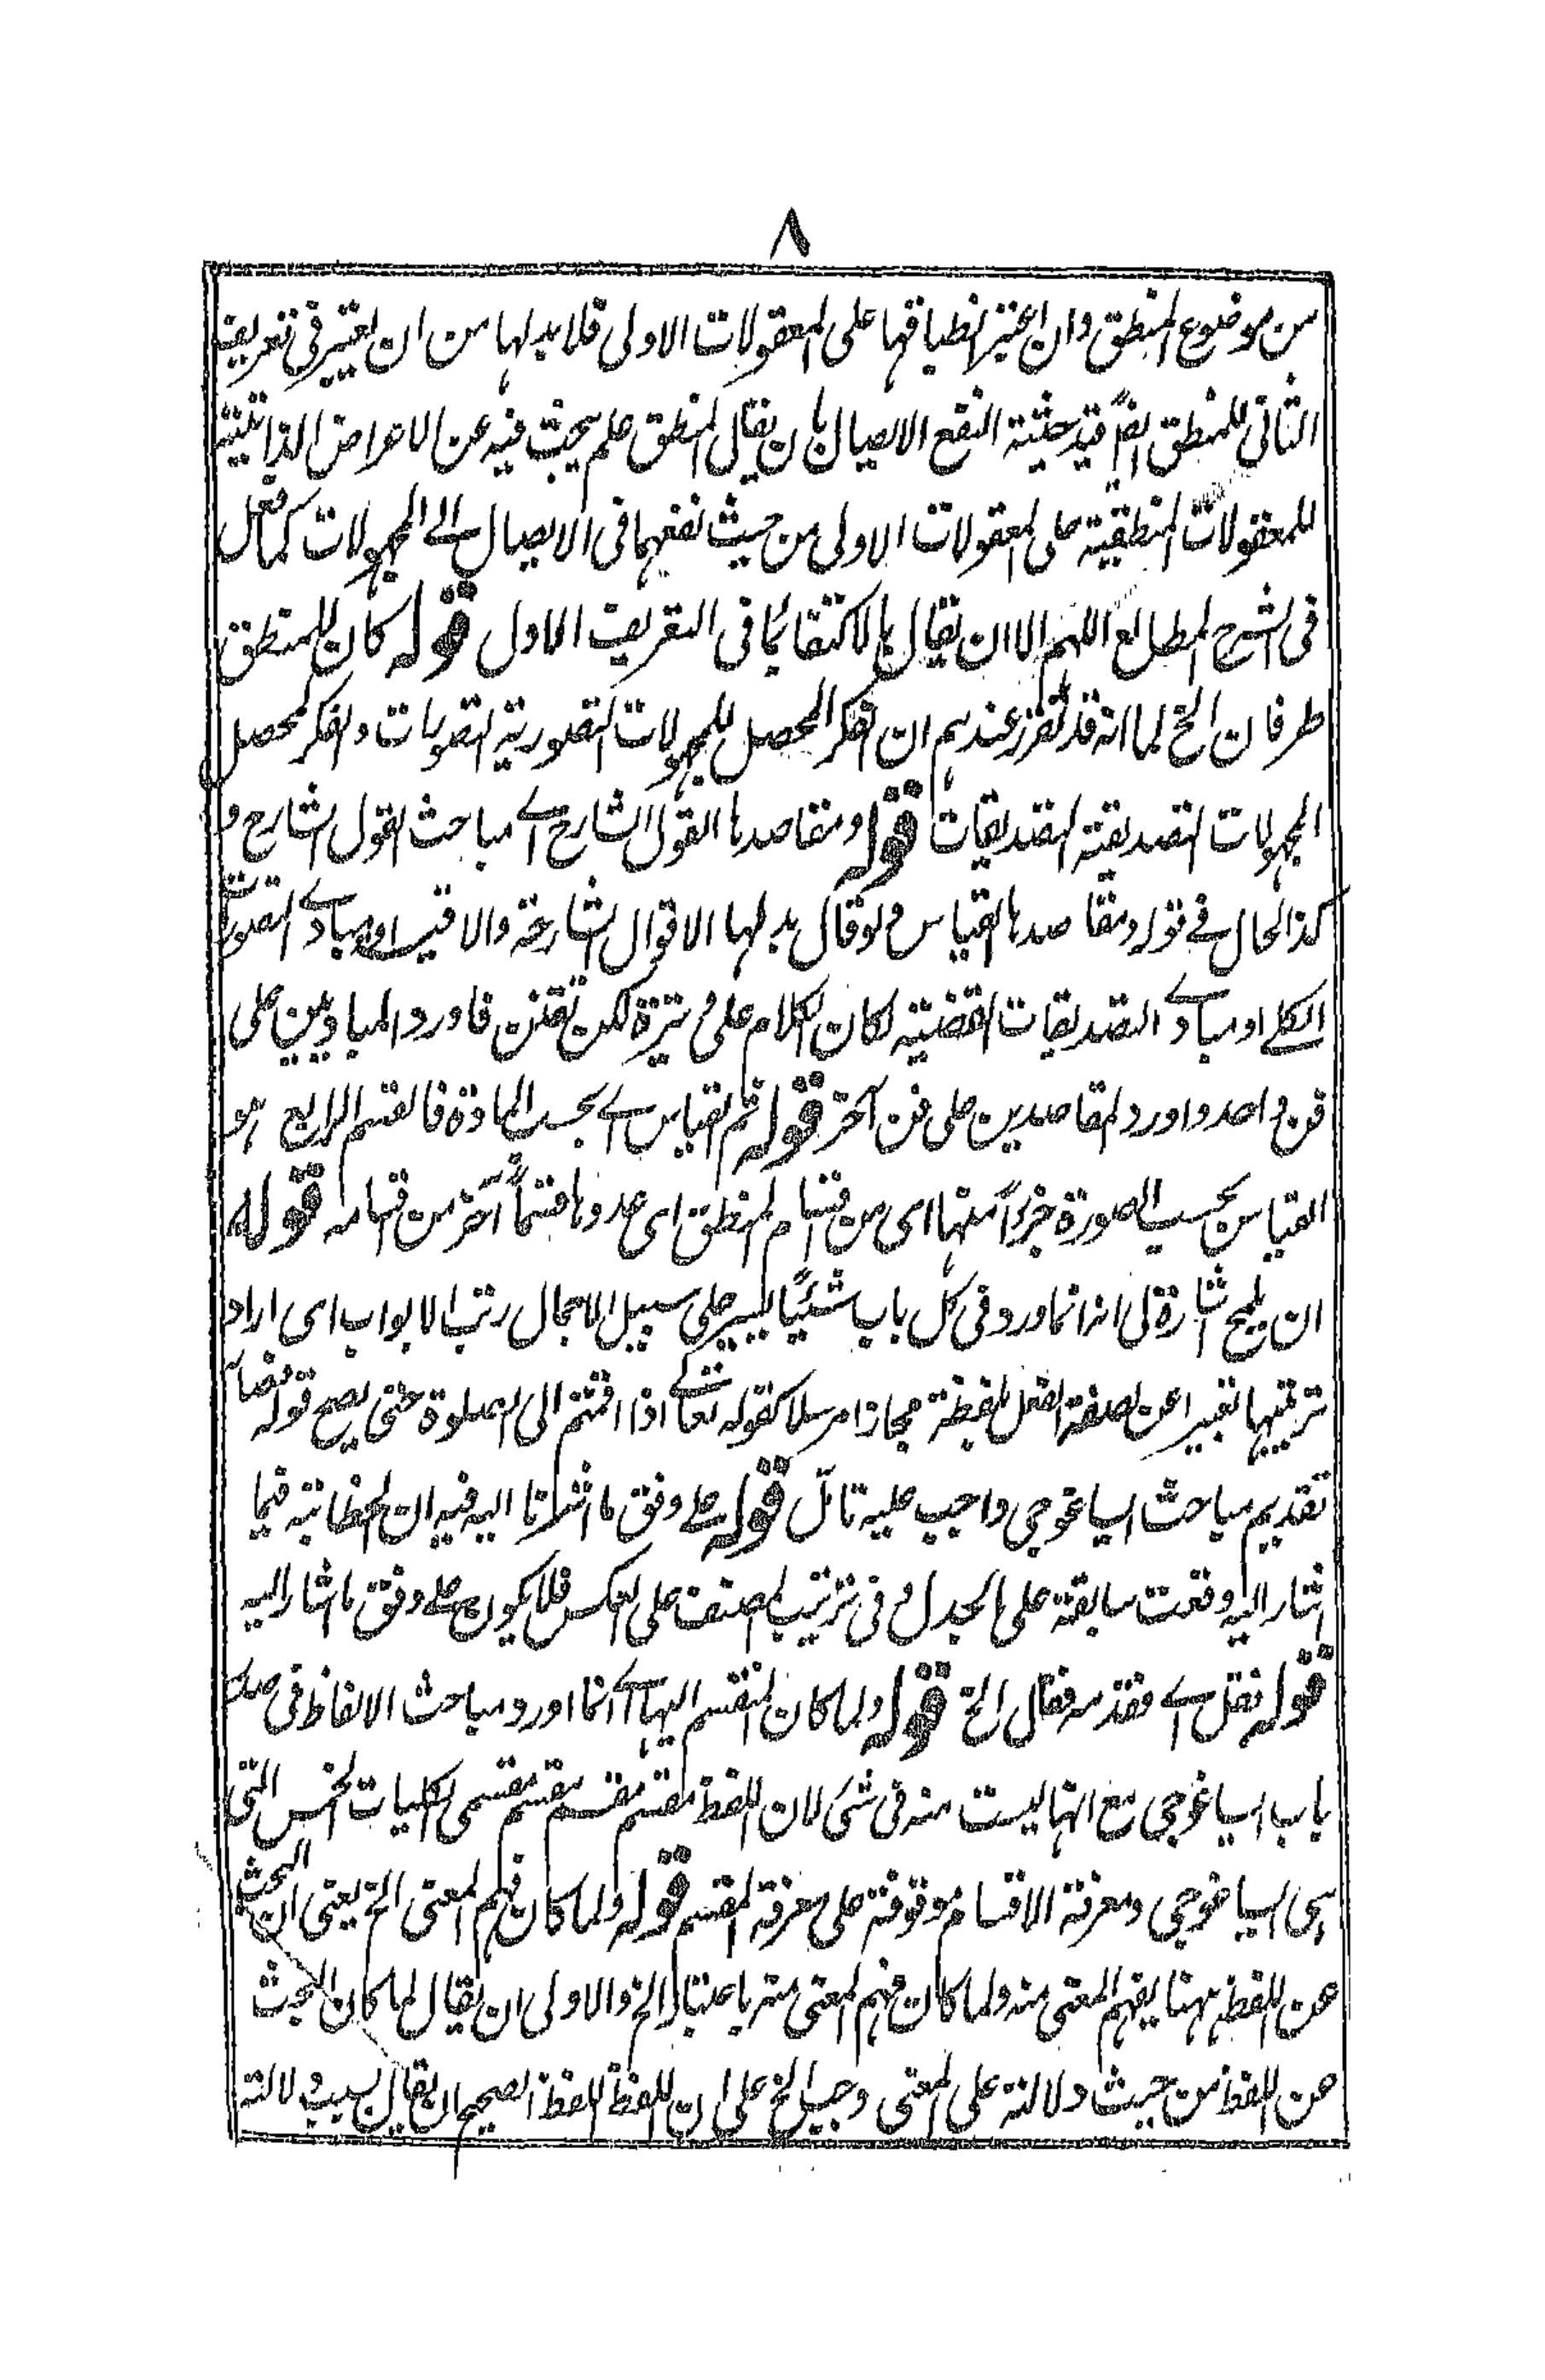 ٨
من موضوع المنطق وان اعتبر انطباقها على المعقولات الاولى فلا بد لها من ان يعتبر فى تعريف
الثانى للمنطق ايضً قيد حيثية النفع الايصال بان يقال المنطق علم يبحث فيه عن الاعراض الذاتية
للمعقولات المنطقية على المعقولات الاولى من حيث نفعهما فى الايصال الے المجهولات كما فعل
فى الشرح المطالع اللهم الا ان يقال بالاكتفا بما فى التعريف الاول قوله كان للمنطق
طرفان الخ لما انه قد تقرر عندهم ان الفكر المحصل للمجهولات التصورية التصورات والفكر المحصل
المجهولات التصديقية التصديقات قوله ومقاصدها القول الشارح اے مباحث القول الشارح و
كذا الحال فے قوله ومقاصدها القياس ولو قال بدلها الاقوال الشارحة والاقيسة او مبادے التصورات
الكلے او مبادے التصديقات القضية لكان الكلام على وتيرة لكن تفنن فاورد المبادين على
فن واحد واورد المقاصدين على فن آخر قوله ثم القياس اے بحسب المادة فالقسم الرابع هو
القياس بحسب الصورة جزءاً منها اى من اقسام المنطق اى عدوها قسماً آخر من اقسامه قوله
ان يلمح اشارة الى انه انما اورد فى كل باب شئياً يسيرا على سبيل الاجمال رتب الابواب اى اراد
ترتيبها تعبيرا عن لصفة الفعل بلفظة مجازا مرسلا كقوله تعالے اذا اقمتم الى الصلوة حتى يصح قوله فصار
تقديم مباحث ايساغوجى واجب عليه تامّل قوله علے وفق ما اشرنا اليه فيه ان الخطابة فيما
اشار اليه وقعت سابقة على الجدل و فى ترتيب المصنف على العكس فلا يكون علے وفق ما اشار اليه
قوله نقل اے فقدمه فقال الخ قوله ولما كان المنقسم اليها اے انما اورد مباحث الالفاظ فى صدر
باب ايساغوجى مع انها ليست منه فى شئ لان اللفظ مقسم مقسم مقسم مقسمى الكليات الخمس التى
هى ايساغوجى ومعرفة الاقسام موقوفة على معرفة المقسم قوله ولما كان فهم المعنى الخ يعنى ان البحث
عن اللفظ ههنا يفهم المعنى منه ولما كان فهم المعنى منه باعتبار الخ والاولى ان يقال لما كان البحث
عن اللفظ من حيث دلالته على المعنى وجب الخ على ان اللفظ اللفظ الصحيح ان يقال بسبب دلالته